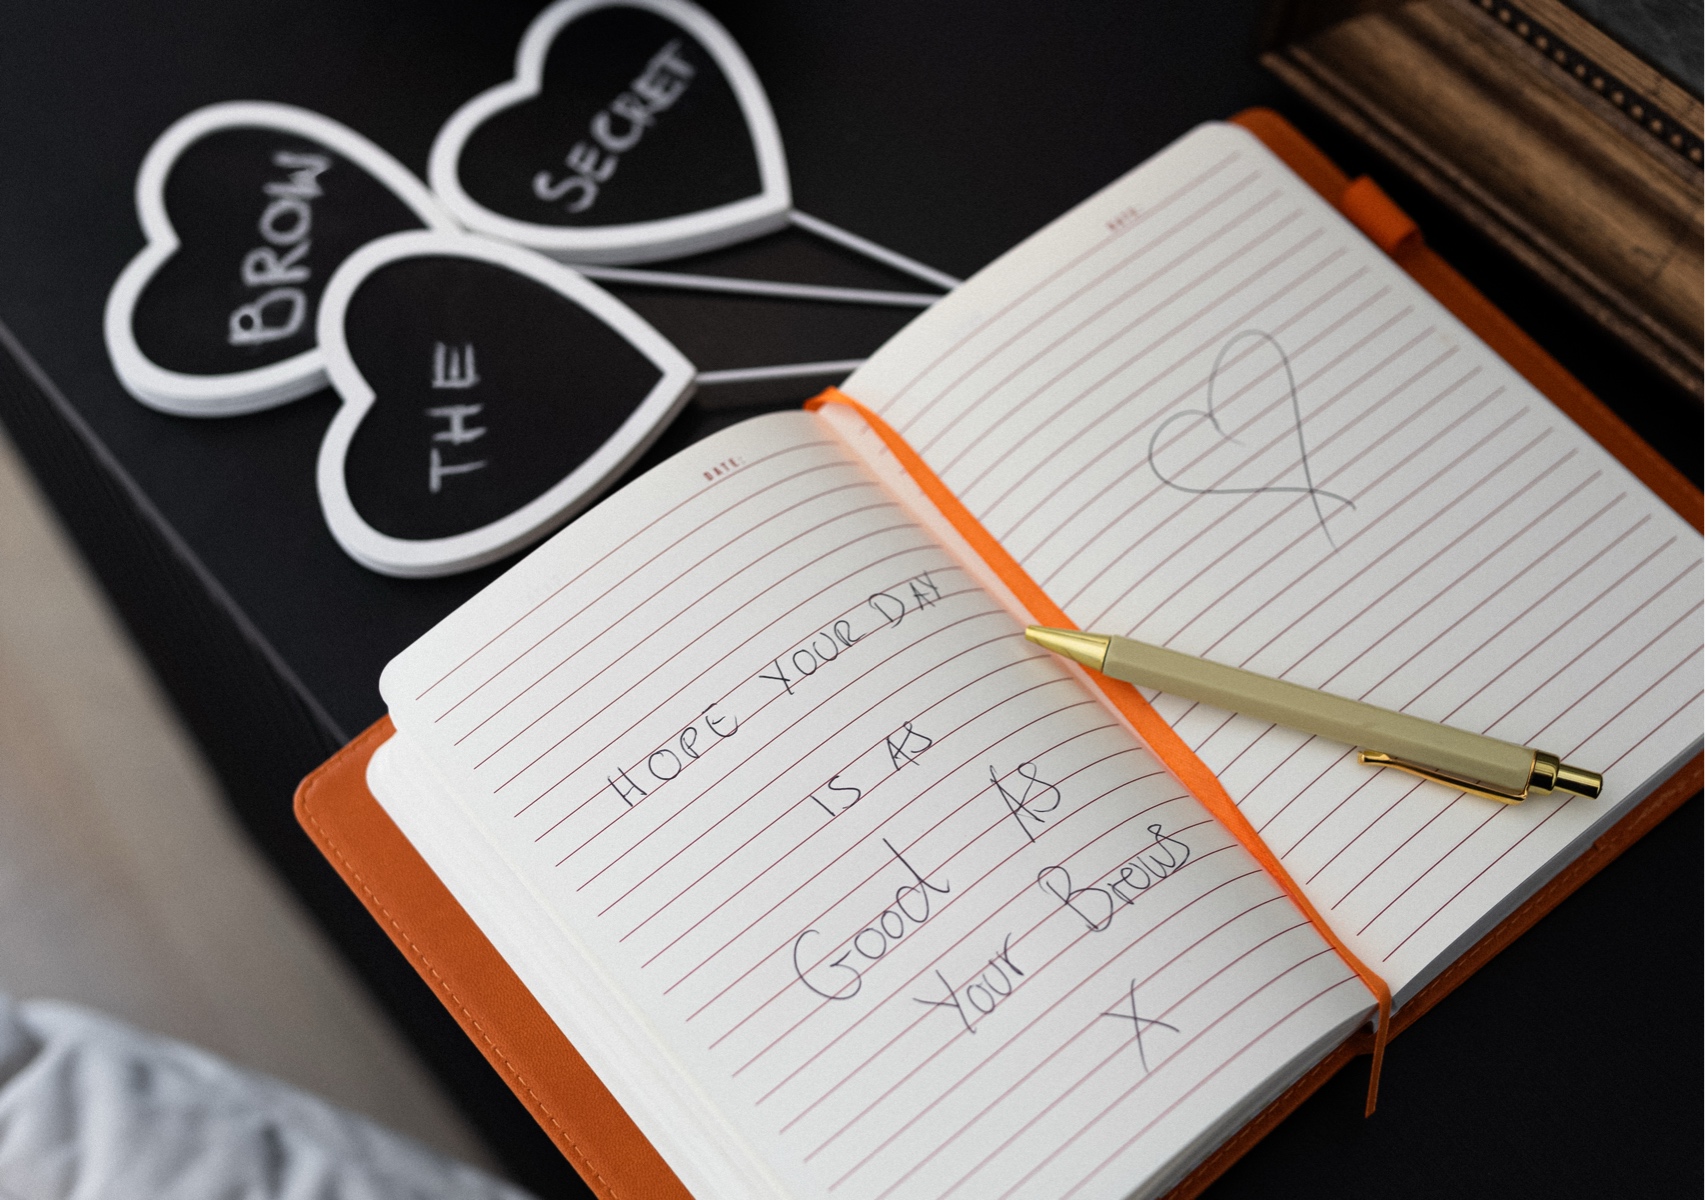 THE
BROW
SECRET
DATE:
DATE:
HOPE YOUR DAY
IS AS
GOOD AS
Your Brows
X